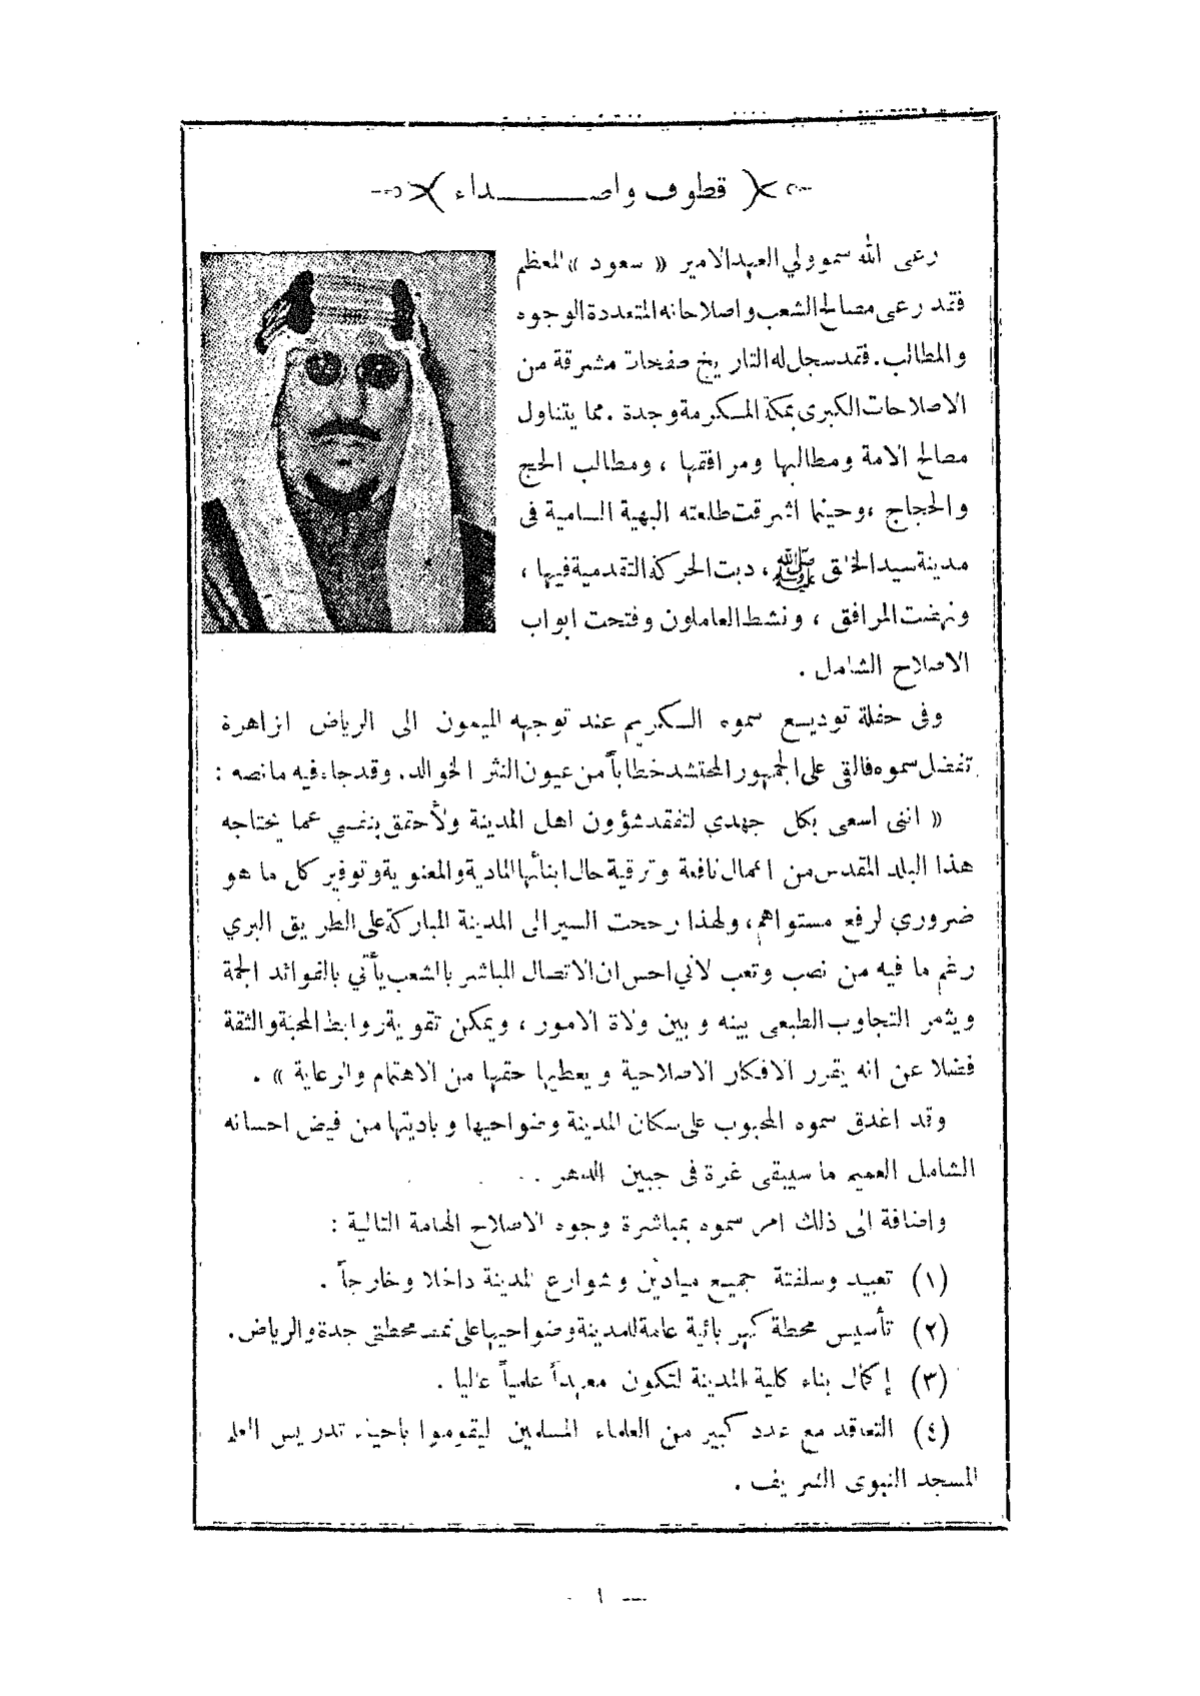 قطوف واصداء
رعى الله سمو ولي العهد الامير « سعود » المعظم
فقد رعى مصالح الشعب واصلاحاته المتعددة الوجوه
والمطالب. فقد سجل له التاريخ صفحات مشرقة من
الاصلاحات الكبرى بمكة المكرمة وجدة . مما يتناول
مصالح الامة ومطالبها ومرافقها ، ومطالب الحج
والحجاج ، وحينما اشرقت طلعته البهية السامية فى
مدينة سيد الخلق ﷺ ، دبت الحركة التقدمية فيها ،
ونهضت المرافق ، ونشط العاملون وفتحت ابواب
الاصلاح الشامل .
وفى حفلة توديع سموه الكريم عند توجهه الميمون الى الرياض الزاهرة
تفضل سموه فالقى على الجمهور المحتشد خطاباً من عيون النثر الخوالد. وقد جاء فيه ما نصه :
« اننى اسعى بكل جهدي لتفقد شؤون اهل المدينة ولأحقق بنفسي عما يحتاجه
هذا البلد المقدس من اعمال نافعة وترقية حال ابنائها المادية والمعنوية وتوفير كل ما هو
ضروري لرفع مستواهم، ولهذا رجحت السير الى المدينة المباركة على الطريق البري
رغم ما فيه من نصب وتعب لاني احس ان الاتصال المباشر بالشعب يأتي بالفوائد الجمة
ويثمر التجاوب الطبعى بينه وبين ولاة الامور ، ويمكن تقوية روابط المحبة والثقة
فضلا عن انه يقرر الافكار الاصلاحية ويعطيها حقها من الاهتمام والرعاية » .
وقد اغدق سموه المحبوب على سكان المدينة وضواحيها وباديتها من فيض احسانه
الشامل العميم ما سيبقى غرة فى جبين الدهر .
واضافة الى ذلك امر سموه بمباشرة وجوه الاصلاح الهامة التالية :
(١) تعبيد وسلفتة جميع ميادين وشوارع المدينة داخلا وخارجاً .
(٢) تأسيس محطة كهربائية عامة للمدينة وضواحيها على نمط محطتى جدة والرياض.
(٣) إكمال بناء كلية المدينة لتكون معهداً علمياً عاليا .
(٤) التعاقد مع عدد كبير من العلماء المسلمين ليقوموا باحياء تدريس العلم
المسجد النبوى الشريف .
— ١